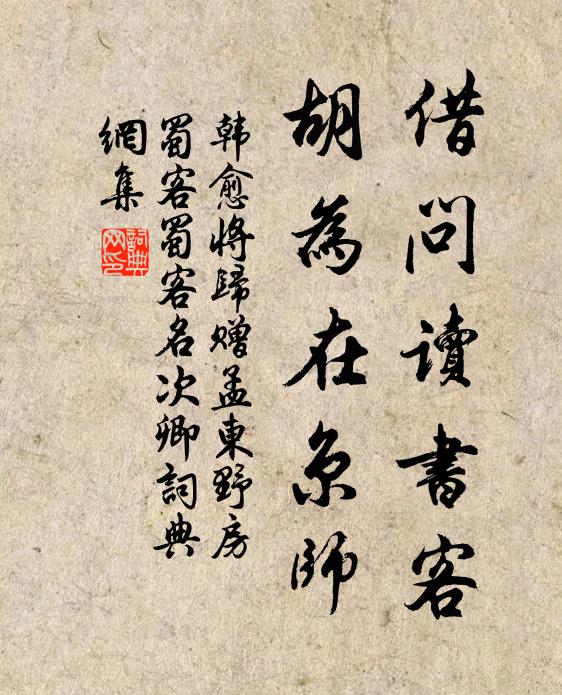 借問讀書客
胡為在京師
韩愈将歸赠孟東野房
蜀客蜀客名次卿詞典
網集
詞典
网印